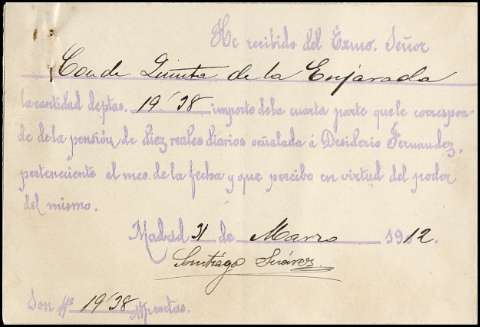 He recibido del Exmo. Señor
Conde Quinta de la Enjarada
la cantidad de ptas. 19'38 importe de la cuarta parte que le correspon-
de de la pensión de diez reales diarios señalada á Desiderio Fernandez,
perteneciente al mes de la fecha y que percibo en virtud del poder
del mismo.
Madrid 31 de Marzo 1912.
Santiago Suárez
Son Ps 19'38 pesetas.